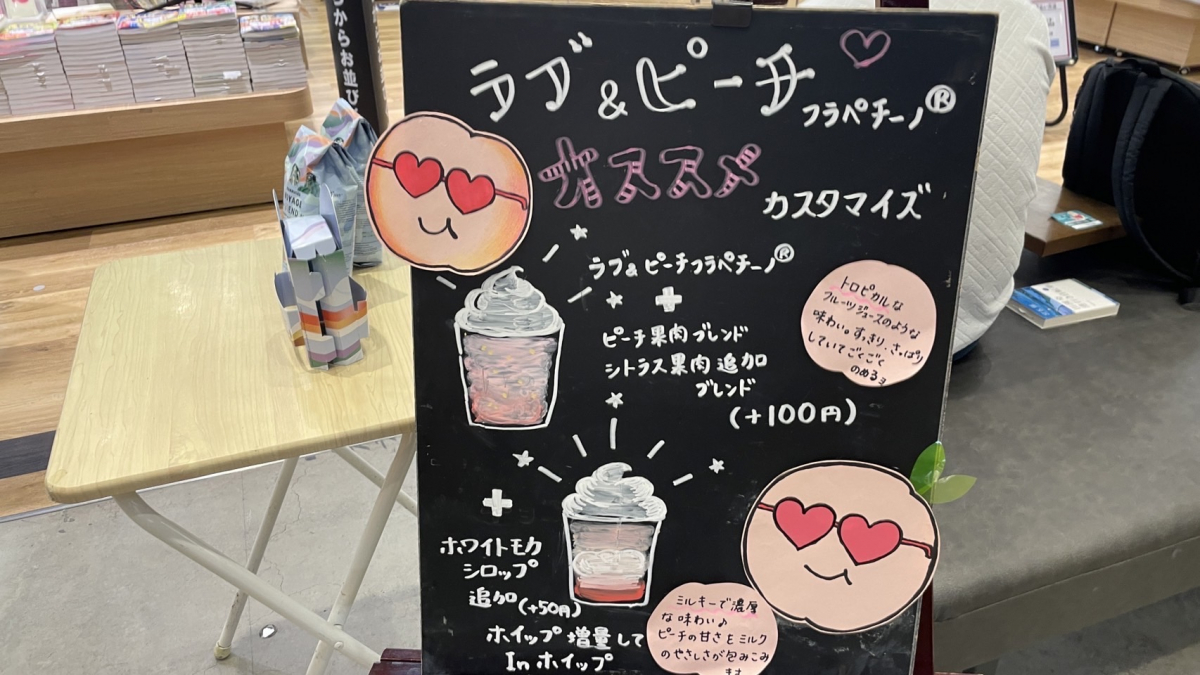 らからお並び
ラブ&ピーチ
フラペチーノ®
オススメ
カスタマイズ
ラブ&ピーチフラペチーノ®
+
ピーチ果肉ブレンド
シトラス果肉追加
ブレンド
(+100円)
トロピカルな
フルーツジュースのような
味わい。すっきり、さっぱり
していてごくごく
のめるョ
+
ホワイトモカ
シロップ
追加(+50円)
ホイップ増量して
Inホイップ
ミルキーで濃厚
な味わい♪
ピーチの甘さをミルク
のやさしさが包みこみ
ます